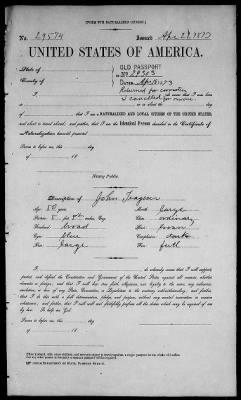 [FORM FOR NATURALIZED CITIZEN.]
No. 29574 Issued Apr 29 1873
UNITED STATES OF AMERICA.
State of
County of
OLD PASSPORT
NO 29303
DATED Apr 1873
Returned for correction
& cancelled for error
do swear that I am
born
or about the day
that I am a NATURALIZED AND LOYAL CITIZEN OF THE UNITED STATES,
and about to travel abroad; and further, that I am the Identical Person described in the Certificate of
Naturalization herewith presented.
Sworn to before me, this day
of 18
Notary Public.
Description of John
Age: 50 years
Stature: 5 feet inches, Eng.
Forehead: broad
Eyes: blue
Nose: large
Mouth: large
Chin: ordinary
Hair: brown
Complexion: dark
Face: full
I, do solemnly swear that I will support, protect,
and defend the Constitution and Government of the United States against all enemies, whether domestic
or foreign; and that I will bear true faith, allegiance, and loyalty to the same, any ordinance,
resolution, or law of any State, Convention, or Legislature to the contrary notwithstanding; and further,
that I do this with a full determination, pledge, and purpose, without any mental reservation or evasion
whatsoever; and further, that I will well and faithfully perform all the duties which may be required of me
by law. So help me God.
Sworn to before me, this day
of 18